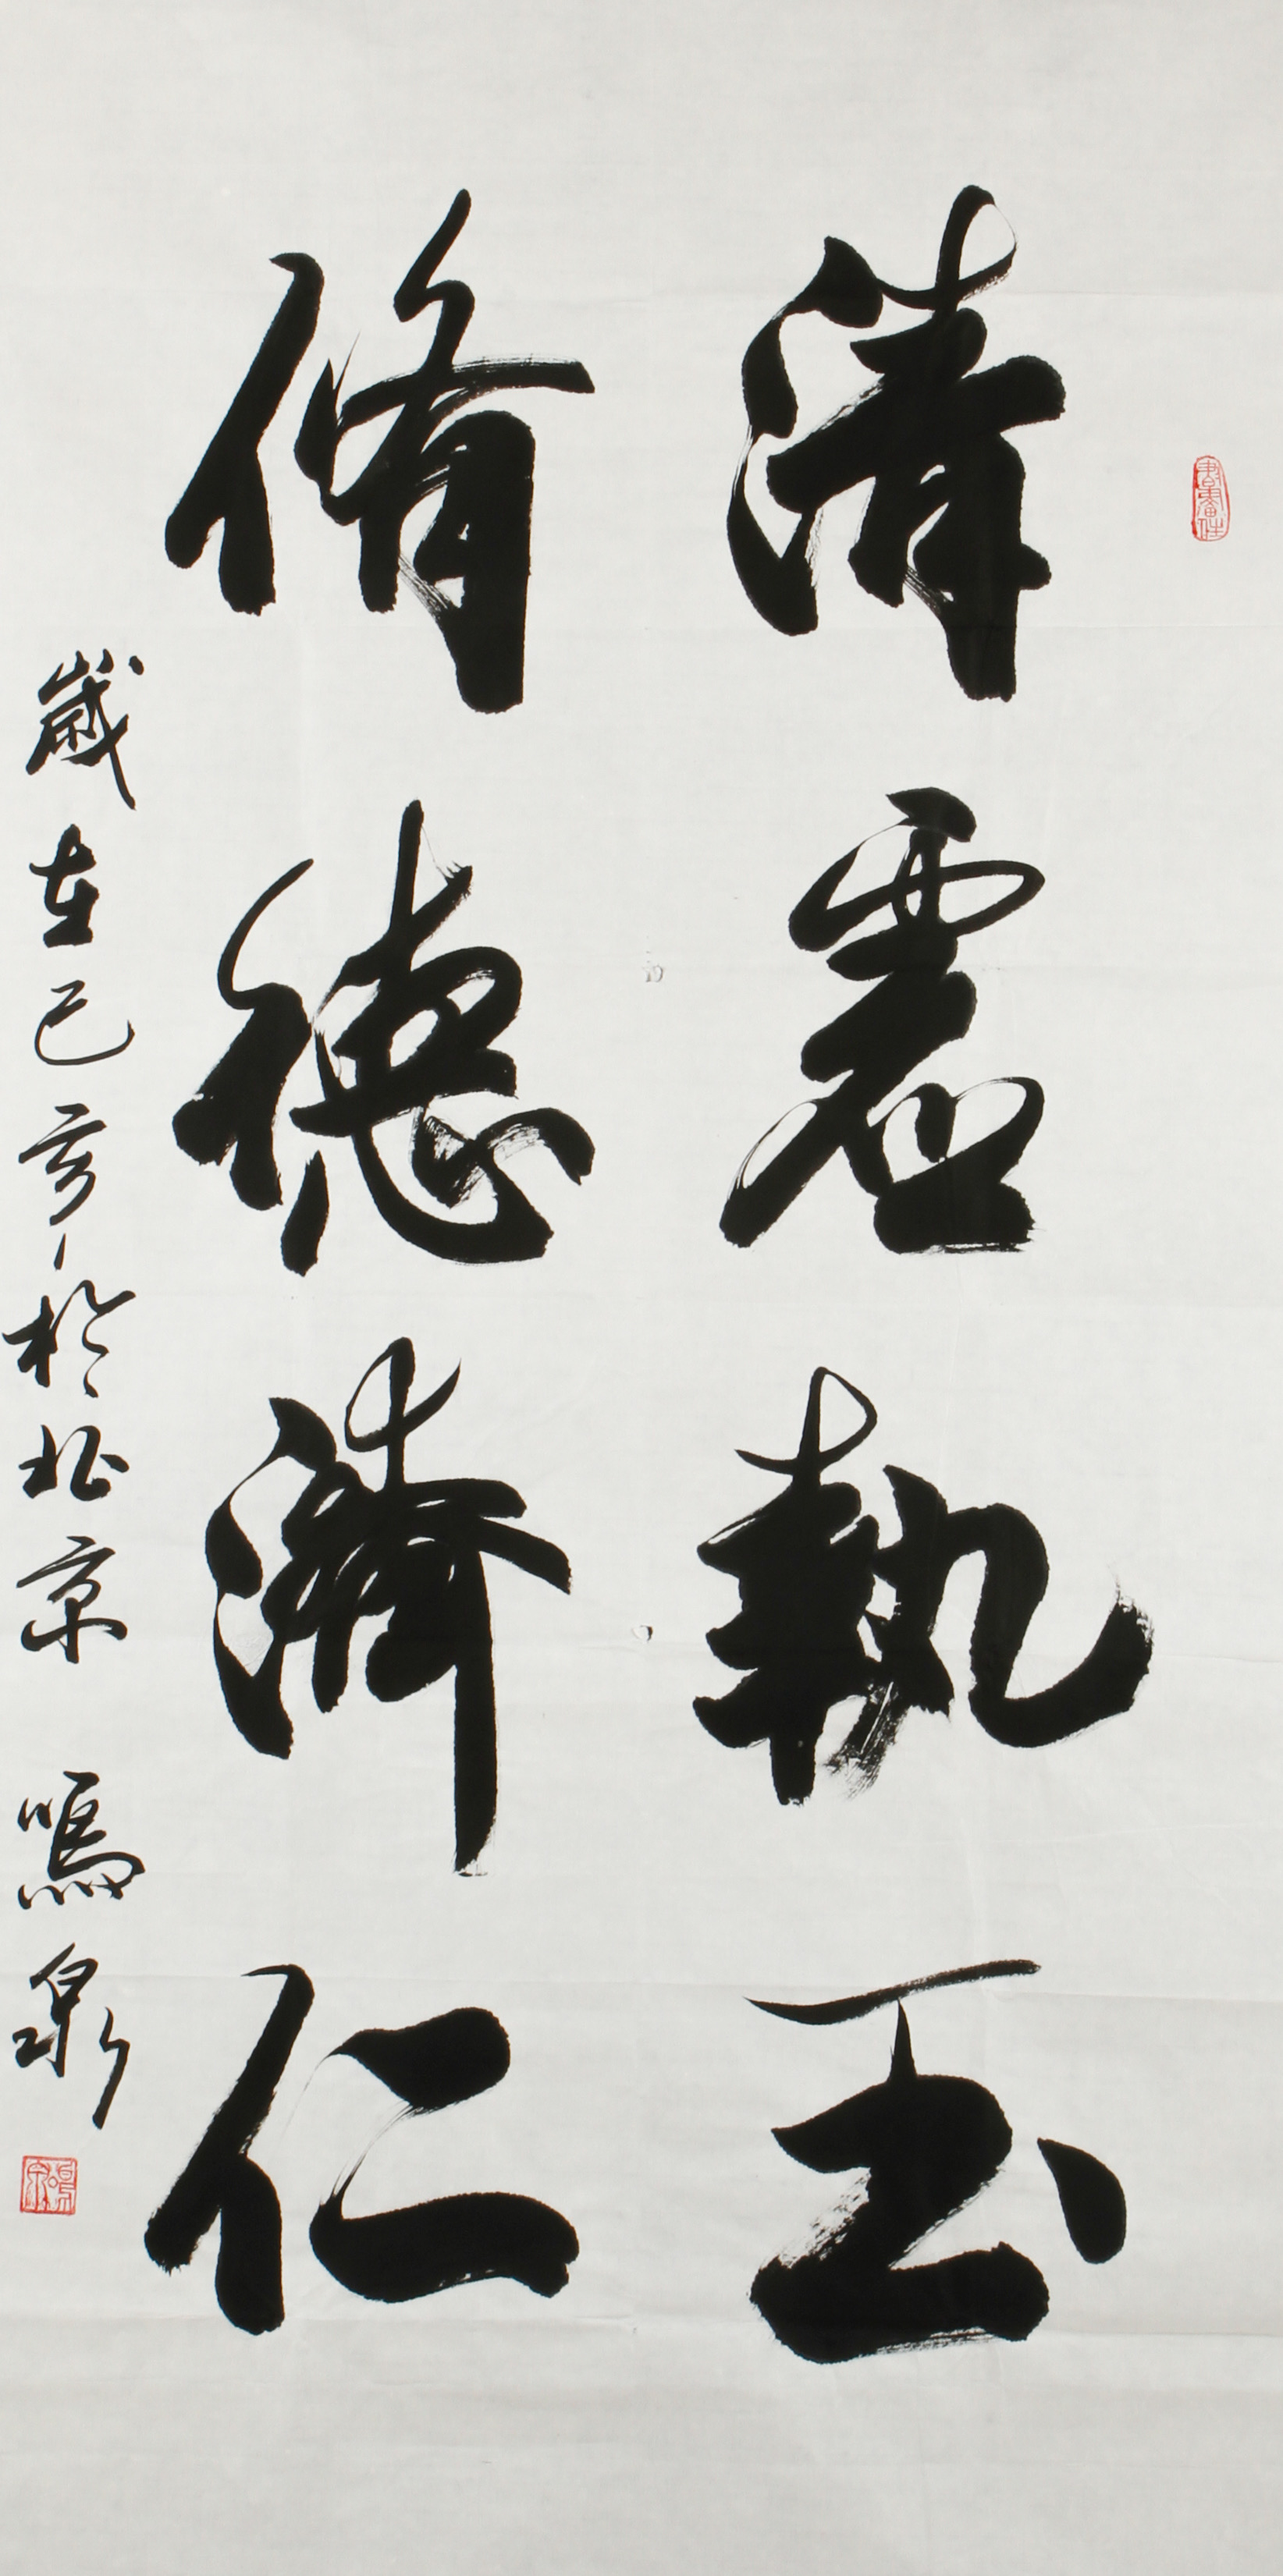 清虛執玉
脩德濟仁
歲在己亥於北京 鳴泉
鳴泉